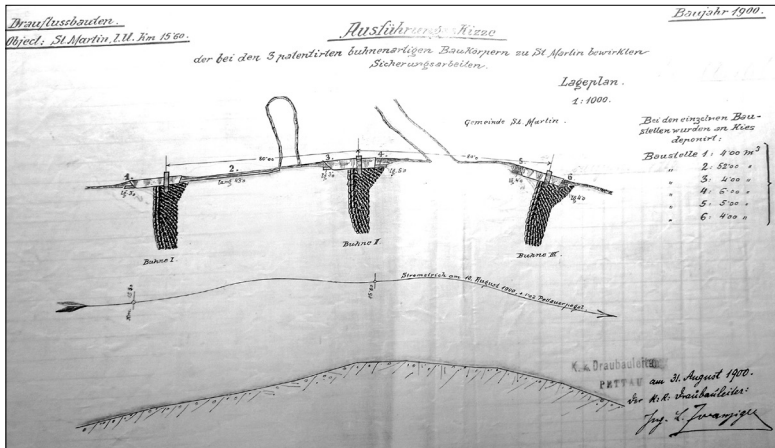 Drauflussbauten.
Object: St. Martin, l. U. Km 15·60.
Baujahr 1900.
Ausführungs-Skizze
der bei den 3 patentirten buhnenartigen Baukörpern zu St. Martin bewirkten
Sicherungsarbeiten.
Lageplan.
1:1000.
Gemeinde St. Martin.
Bei den einzelnen Bau-
stellen wurden an Kies
deponirt:
Baustelle 1: 4·00 m³
" 2: 52·00 "
" 3: 4·00 "
" 4: 6·00 "
" 5: 5·00 "
" 6: 4·00 "
1. 2. 3. 4. 5. 6.
Buhne I.
Buhne II.
Buhne III.
Stromstrich am 10. August 1900
15·60
K. k. Draubauleitung
PETTAU
am 31. August 1900.
Der k. k. Draubauleiter:
Ing. L.